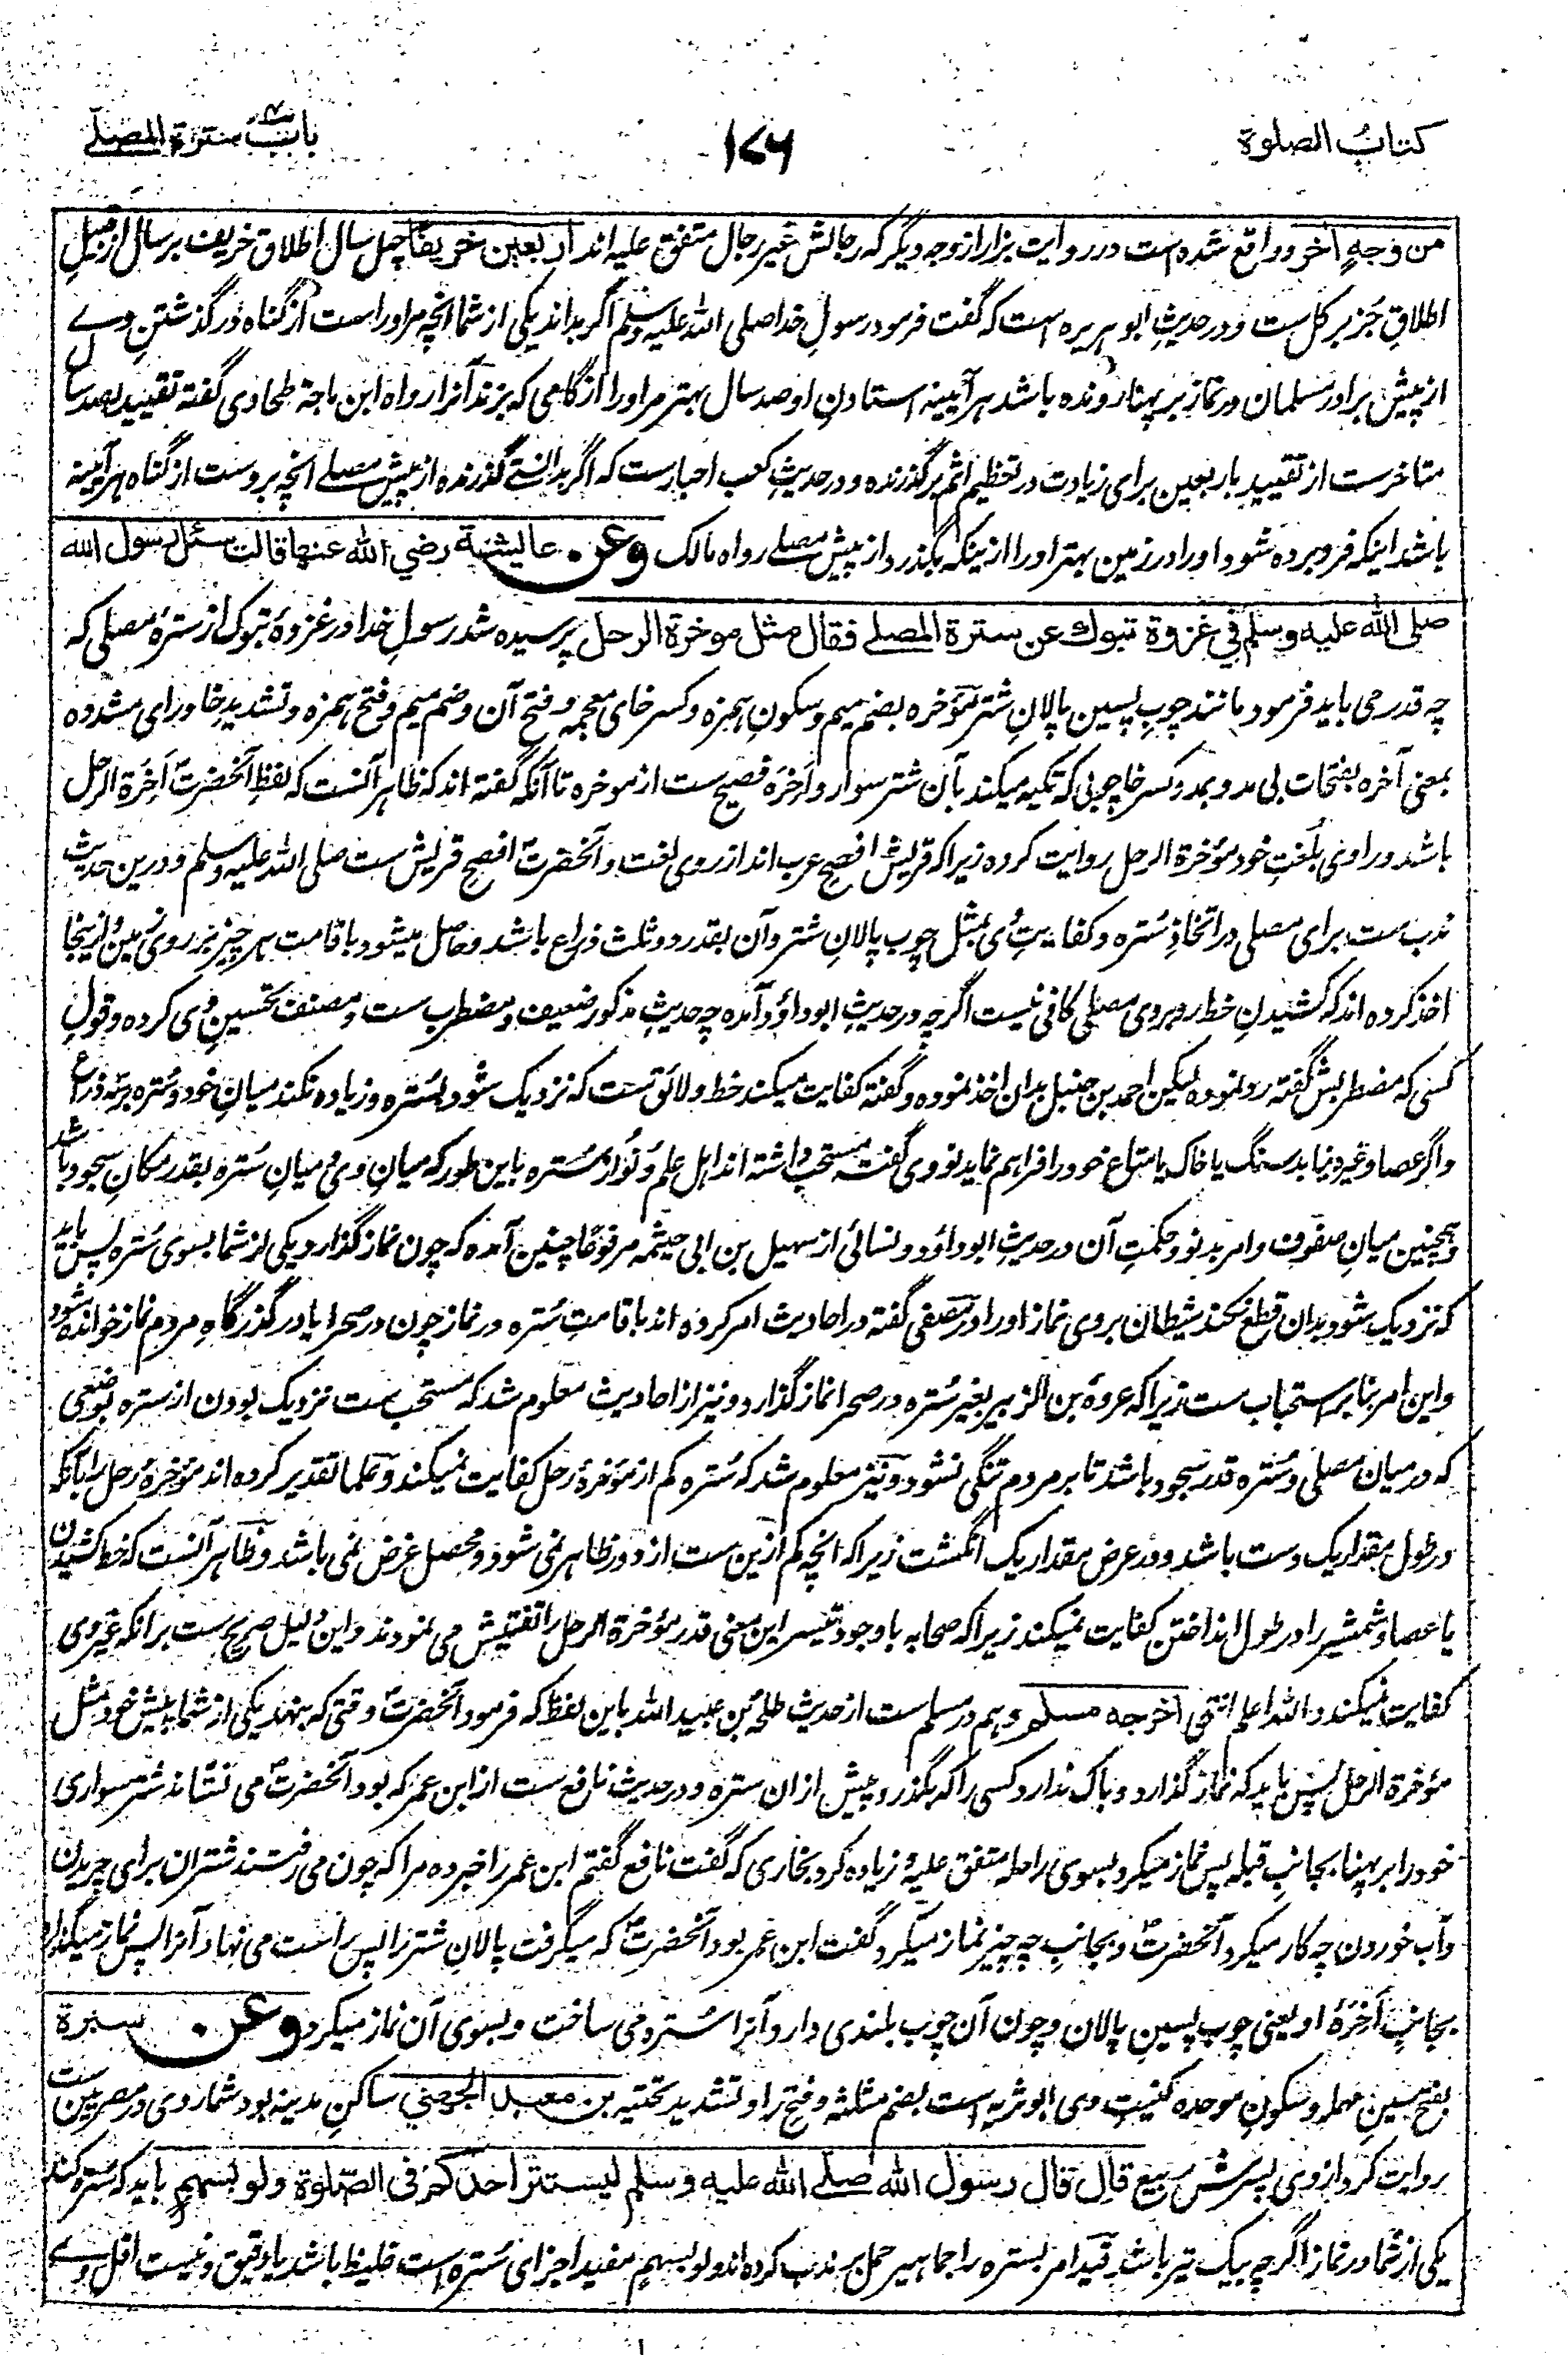 کتابُ الصلوة
۱۷۶
بابُ سترة المصلے
من وجهٍ آخر و واقع شده است در روایت بزار از وجه دیگر که رجالش غیر رجال متفق علیه اند اربعین خریفًا چهل سال اطلاق خریف بر سال از قبیلِ
اطلاقِ جُز بر کل ست و در حدیثِ ابو هریره است که گفت فرمود رسولِ خدا صلی الله علیه وسلم اگر بداند یکی از شما انچه مر او راست از گناه در گذشتنِ وے
از پیش برادر مسلمان در نماز بر پهنا رونده باشد هر آیینه استادنِ او صد سال بهتر مر او را از گامی که بزند آنرا رواه ابن ماجة طحاوی گفته تقیید بصد سال
متاخرست از تقیید باربعین برای زیادت در تعظیم اثم بر گذرنده و در حدیثِ کعب احبارست که اگر بدانستے گذرنده از پیش مصلے انچه بروست از گناه هر آیینه
باشد اینکه فرو برده شود او را در زمین بهتر او را از ینکه بگذرد از پیش مصلے رواه مالک وعن عایشة رضي الله عنها قالت سئل رسول الله
صلی الله علیه وسلم في غزوة تبوك عن سترة المصلے فقال مثل موخرة الرحل پرسیده شد رسول خدا در غزوۀ تبوک از سترۀ مصلی که
چه قدر می باید فرمود مانند چوبِ پسین پالانِ شتر مؤخره بضم میم و سکونِ همزه و کسر خای معجمه و فتح آن و ضم میم و فتح همزه و تشدیدِ خا و رای مشدوه
بمعنی آخره بفتحات بی مد و بمد و کسر خا چوبی که تکیه میکند بآن شتر سوار و آخِرَه فصیح ست از موخره تا آنکه گفته اند که ظاهر آنست که لفظِ آنحضرتؐ آخِرَة الرحل
باشد و راوی بلُغتِ خود مؤخرة الرحل روایت کرده زیرا که قریش افصحِ عرب اند از روی لغت و آنحضرتؐ افصحِ قریش ست صلی الله علیه وسلم و درین حدیث
ندب ست برای مصلی در اتخاذِ سُتره و کفایتِ وُی بمثل چوب پالانِ شتر و آن بقدر دو ثلث ذراع باشد و حاصل میشود باقامت هر چیز بر روی زمین و ازینجا
اخذ کرده اند که کشیدنِ خط روبروی مصلی کافی نیست اگرچه در حدیثِ ابوداؤد آمده چه حدیثِ مذکور ضعیف و مضطرب ست و مصنف تحسینِ وی کرده و قولِ
کسی که مضطربش گفته رد نموده لیکن احمد بن حنبل بدان اخذ نموده و گفته کفایت میکند خط و لائق ست که نزدیک شود بسُتره و زیاده نکند میانِ خود و سُتره بر سه ذراع
و اگر عصا و غیره نیابد سنگ یا خاک یا متاع خود را فراهم نماید نووی گفته مستحب داشته اند اهل علم دُنُوّ از سُتره باین طور که میانِ وی و میانِ سُتره بقدر مکانِ سجود باشد
و همچنین میانِ صفوف و امر بدنو و حکمتِ آن در حدیثِ ابوداؤد و نسائی از سهیل بن ابی حیثمه مرفوعًا چنین آمده که چون نماز گذارد یکی از شما بسوی سُتره پس باید
که نزدیک شود بدان قطع نکند شیطان بروی نماز او را در مصفی گفته در احادیث امر کرده اند باقامتِ سُتره در نماز چون در صحرا یا در گذرگاهِ مردم نماز خوانده شود
و این امر بنا بر استحباب ست زیرا که عروۀ بن الزبیر بغیر سُتره در صحرا نماز گذارد و نیز از احادیث معلوم شد که مستحب ست نزدیک بودن از ستره بوضعی
که در میان مصلی و سُتره قدر سجود باشد تا بر مردم تنگی نشود و نیز معلوم شد که سُتره کم از مؤخرۀ رحل کفایت نمیکند و علما تقدیر کرده اند مؤخرۀ رحل را بآنکه
در طول بمقدار یک دست باشد و در عرض مقدار یک انگشت زیرا که انچه کم ازین ست از دور ظاهر نمی شود و محصل غرض نمی باشد و ظاهر آنست که خط کشیدن
یا عصا و شمشیر را در طول انداختن کفایت نمیکند زیرا که صحابه با وجود تیسر این معنی قدر مؤخرة الرحل را تفتیش می نمودند و این دلیل صریح ست بر انکه غیر وی
کفایت نمیکند والله اعلم انتهی اخرجه مسلم و هم در مسلم ست از حدیث طلحة بن عبید الله باین لفظ که فرمود آنحضرتؐ وقتی که بنهد یکی از شما پیش خود مثل
مؤخرة الرحل پس باید که نماز گذارد و باک ندارد کسی را که بگذرد پیش از ان ستره و در حدیث نافع ست از ابن عمر که بود آنحضرتؐ می نشاند شتر سواری
خود را بر پهنا بجانبِ قبله پس نماز میکرد بسوی راحله متفق علیه زیاده کرد بخاری که گفت نافع گفتم ابن عمر را خبر ده مرا که چون می رفتند شتران برای چریدن
و آب خوردن چه کار میکرد آنحضرتؐ و بجانبِ چه چیز نماز میکرد گفت ابن عمر بود آنحضرتؐ که میگرفت پالانِ شتر را پس راست می نهاد آنرا پس نماز میگذارد
بجانبِ آخِرَۀ او یعنی چوب پسین پالان و چون آن چوب بلندی دارد آنرا سُتره می ساخت و بسوی آن نماز میکرد وعن سبرة
بفتح سینِ مهمله و سکونِ موحده کنیتِ وی ابو ثریه است بضم مثلثه و فتح را و تشدید تحتیه بن معبد الجهني ساکنِ مدینه بود شمار وی در مصریین ست
روایت کرد از وی پسرش ربیع قال قال رسول الله صلے الله علیه وسلم لیستتر احدکم فی الصلوة ولو بسهمٍ باید که ستره کند
یکی از شما در نماز اگرچه بیک تیر باشد قید امر بستره را جماهیر حمل بر ندب کرده اند و لو بسهمٍ مفید اجزای سُتره است غلیظ باشد یا دقیق و نیست اقل وے